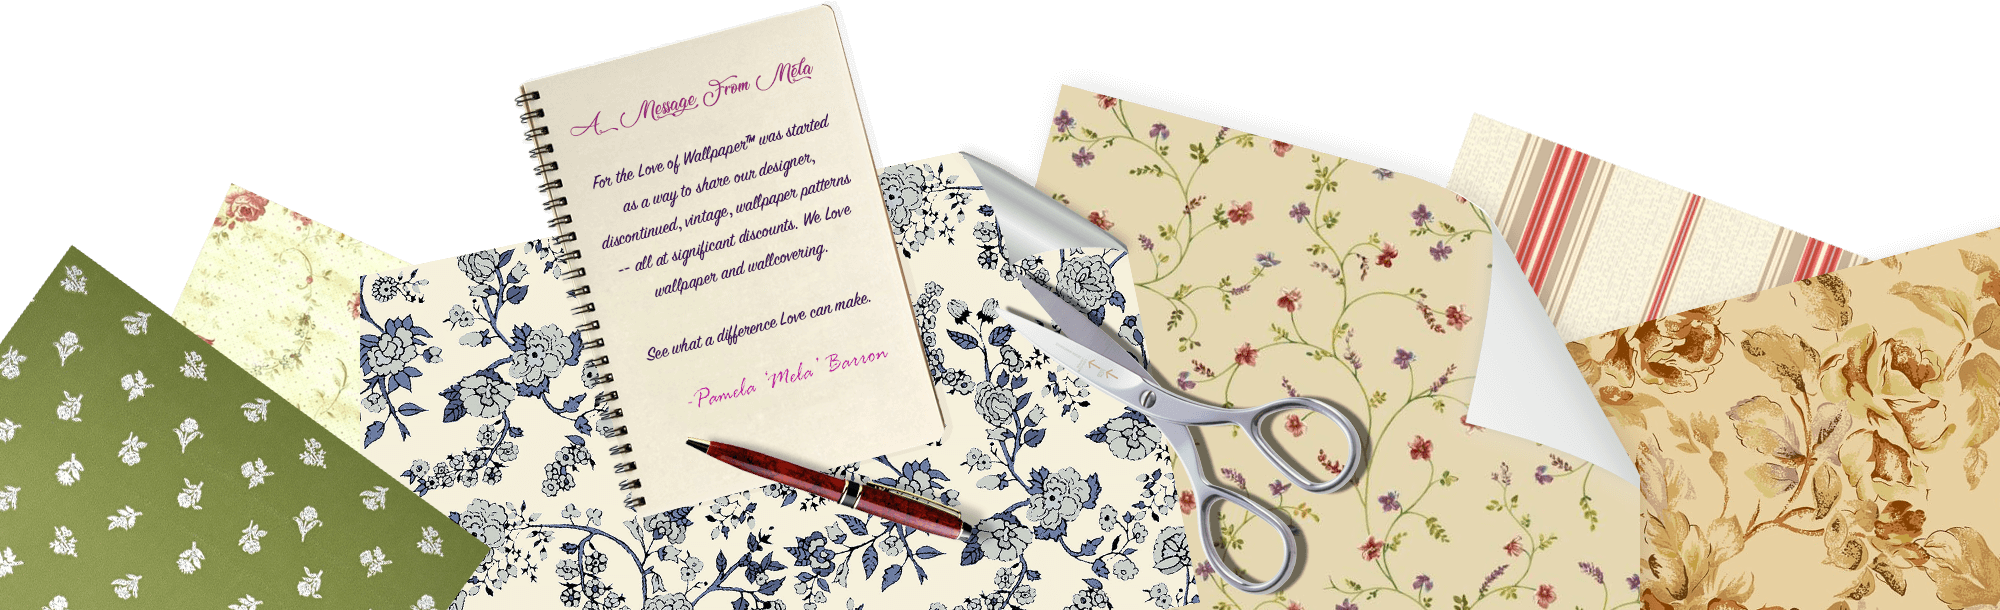 A Message From Mela
For the Love of Wallpaper™ was started
as a way to share our designer,
discontinued, vintage, wallpaper patterns
-- all at significant discounts. We Love
wallpaper and wallcovering.
See what a difference Love can make.
-Pamela 'Mela' Barron